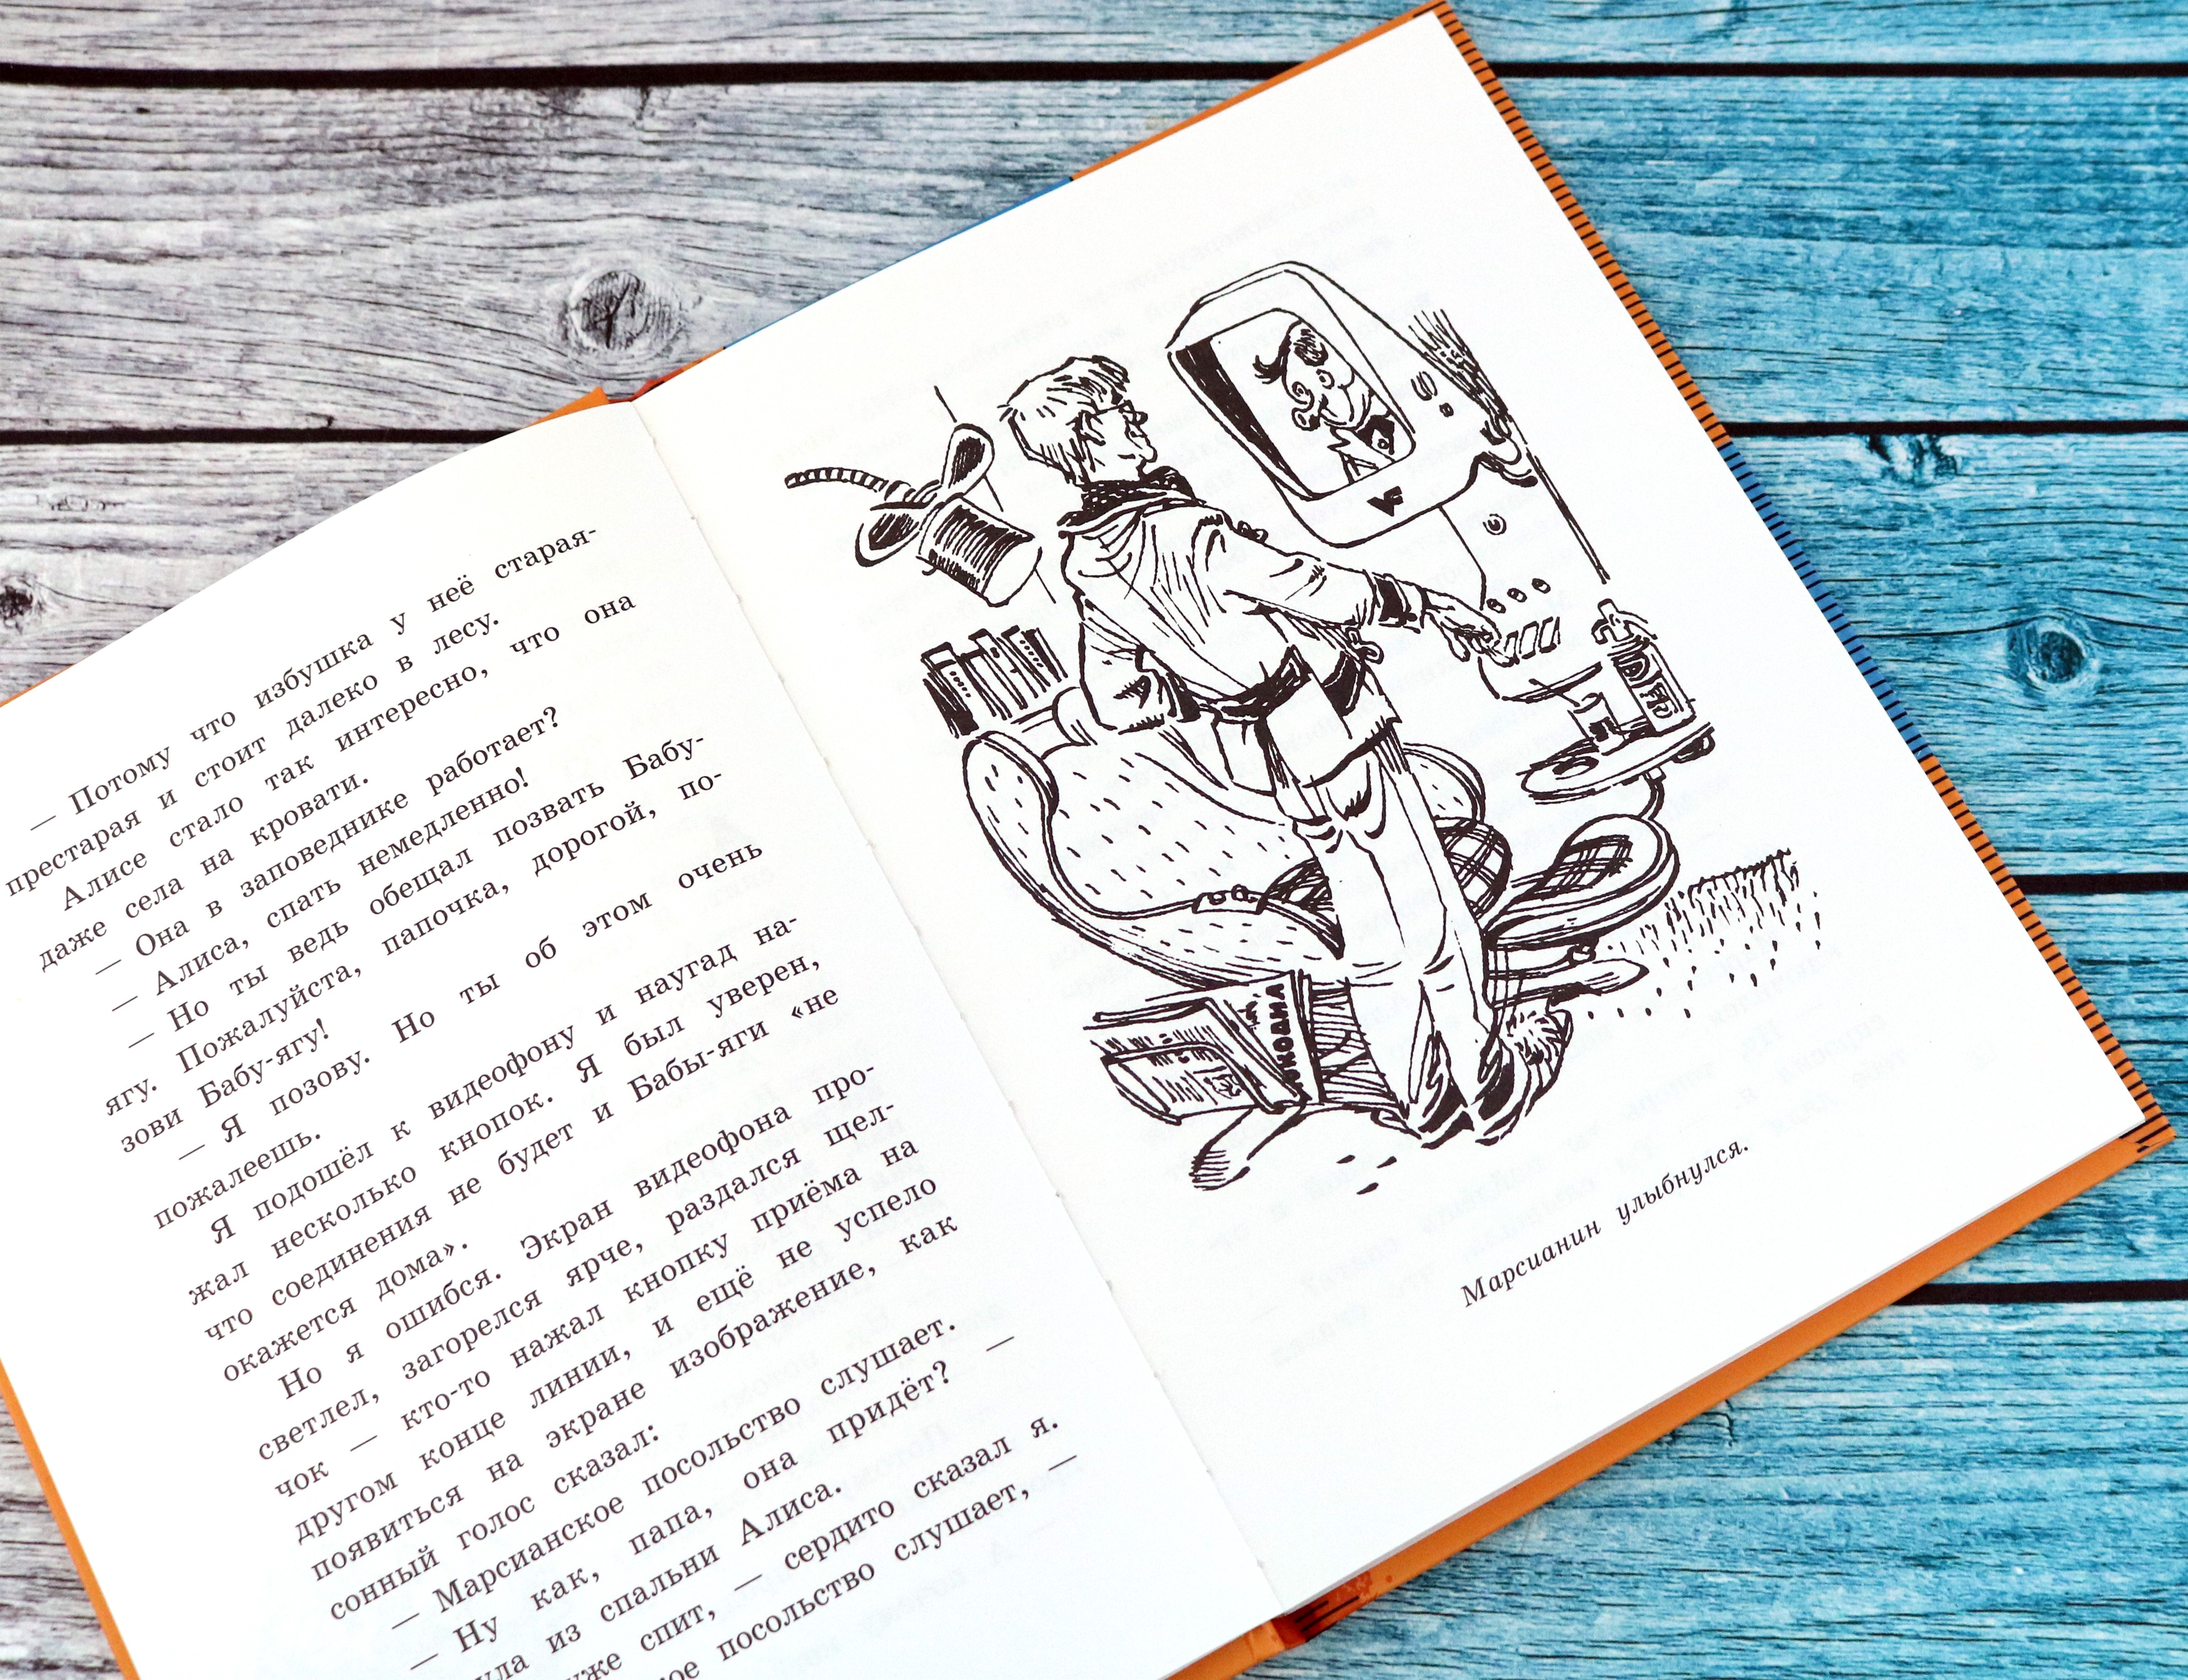 — Потому что избушка у неё старая-
престарая и стоит далеко в лесу.
Алисе стало так интересно, что она
даже села на кровати.
— Она в заповеднике работает?
— Алиса, спать немедленно!
— Но ты ведь обещал позвать Бабу-
ягу. Пожалуйста, папочка, дорогой, по-
зови Бабу-ягу!
— Я позову. Но ты об этом очень
пожалеешь.
Я подошёл к видеофону и наугад на-
жал несколько кнопок. Я был уверен,
что соединения не будет и Бабы-яги «не
окажется дома».
Но я ошибся. Экран видеофона про-
светлел, загорелся ярче, раздался щел-
чок — кто-то нажал кнопку приёма на
другом конце линии, и ещё не успело
появиться на экране изображение, как
сонный голос сказал:
— Марсианское посольство слушает.
— Ну как, папа, она придёт? —
из спальни Алиса.
спит, — сердито сказал я.
посольство слушает, —
Марсианин улыбнулся.